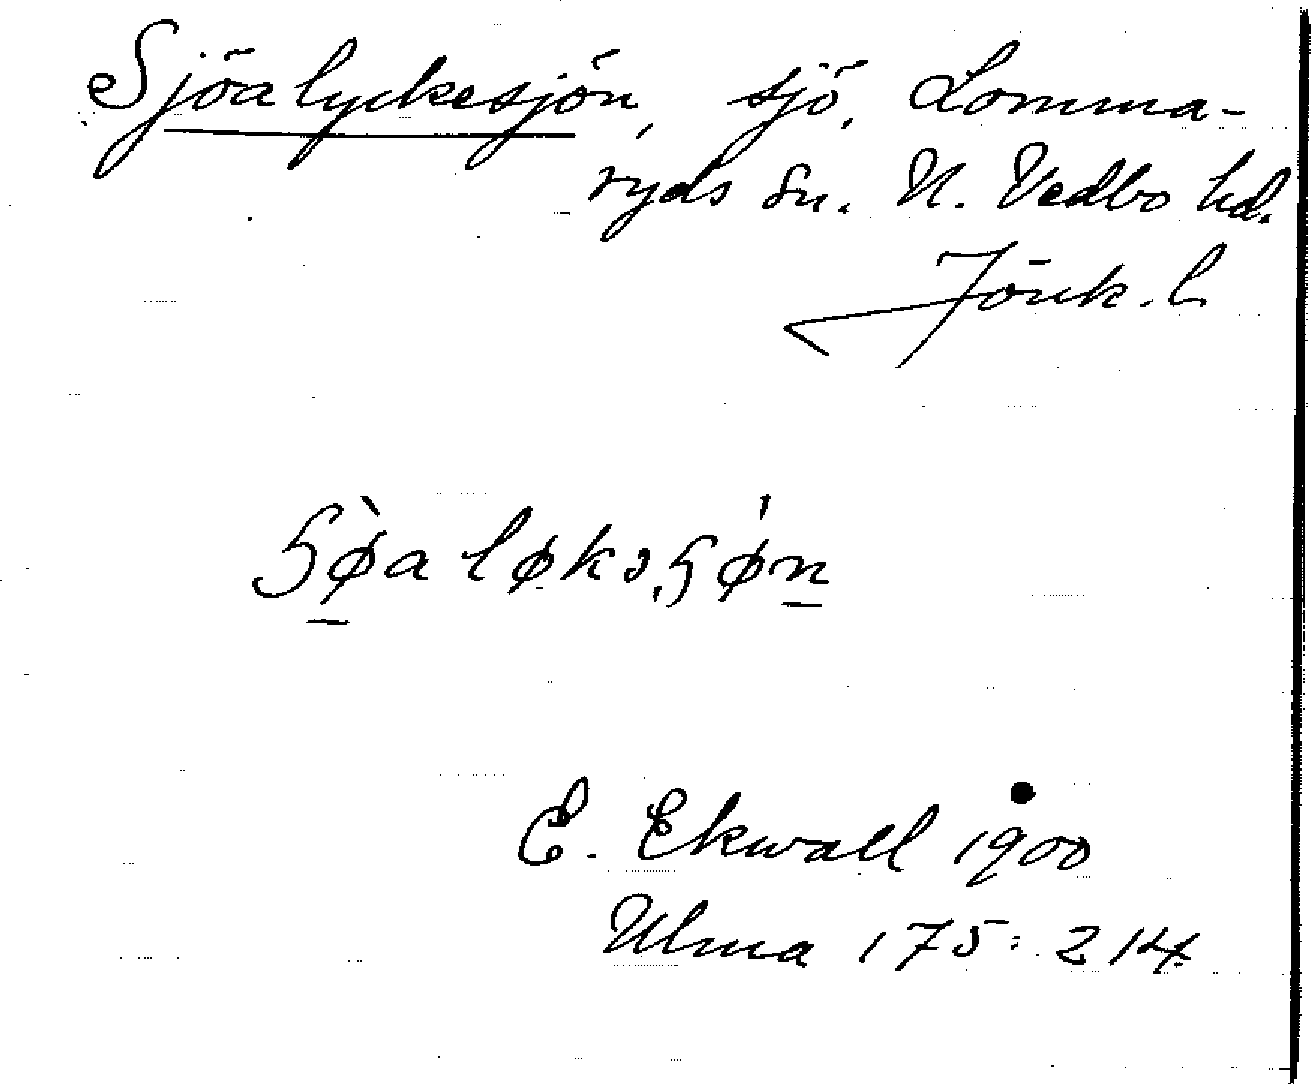 Sjöalyckesjön, sjö, Lomma-
ryds sn. N. Vedbo hd.
Jönk. l
E. Ekwall 1900
Ulma 175: 214